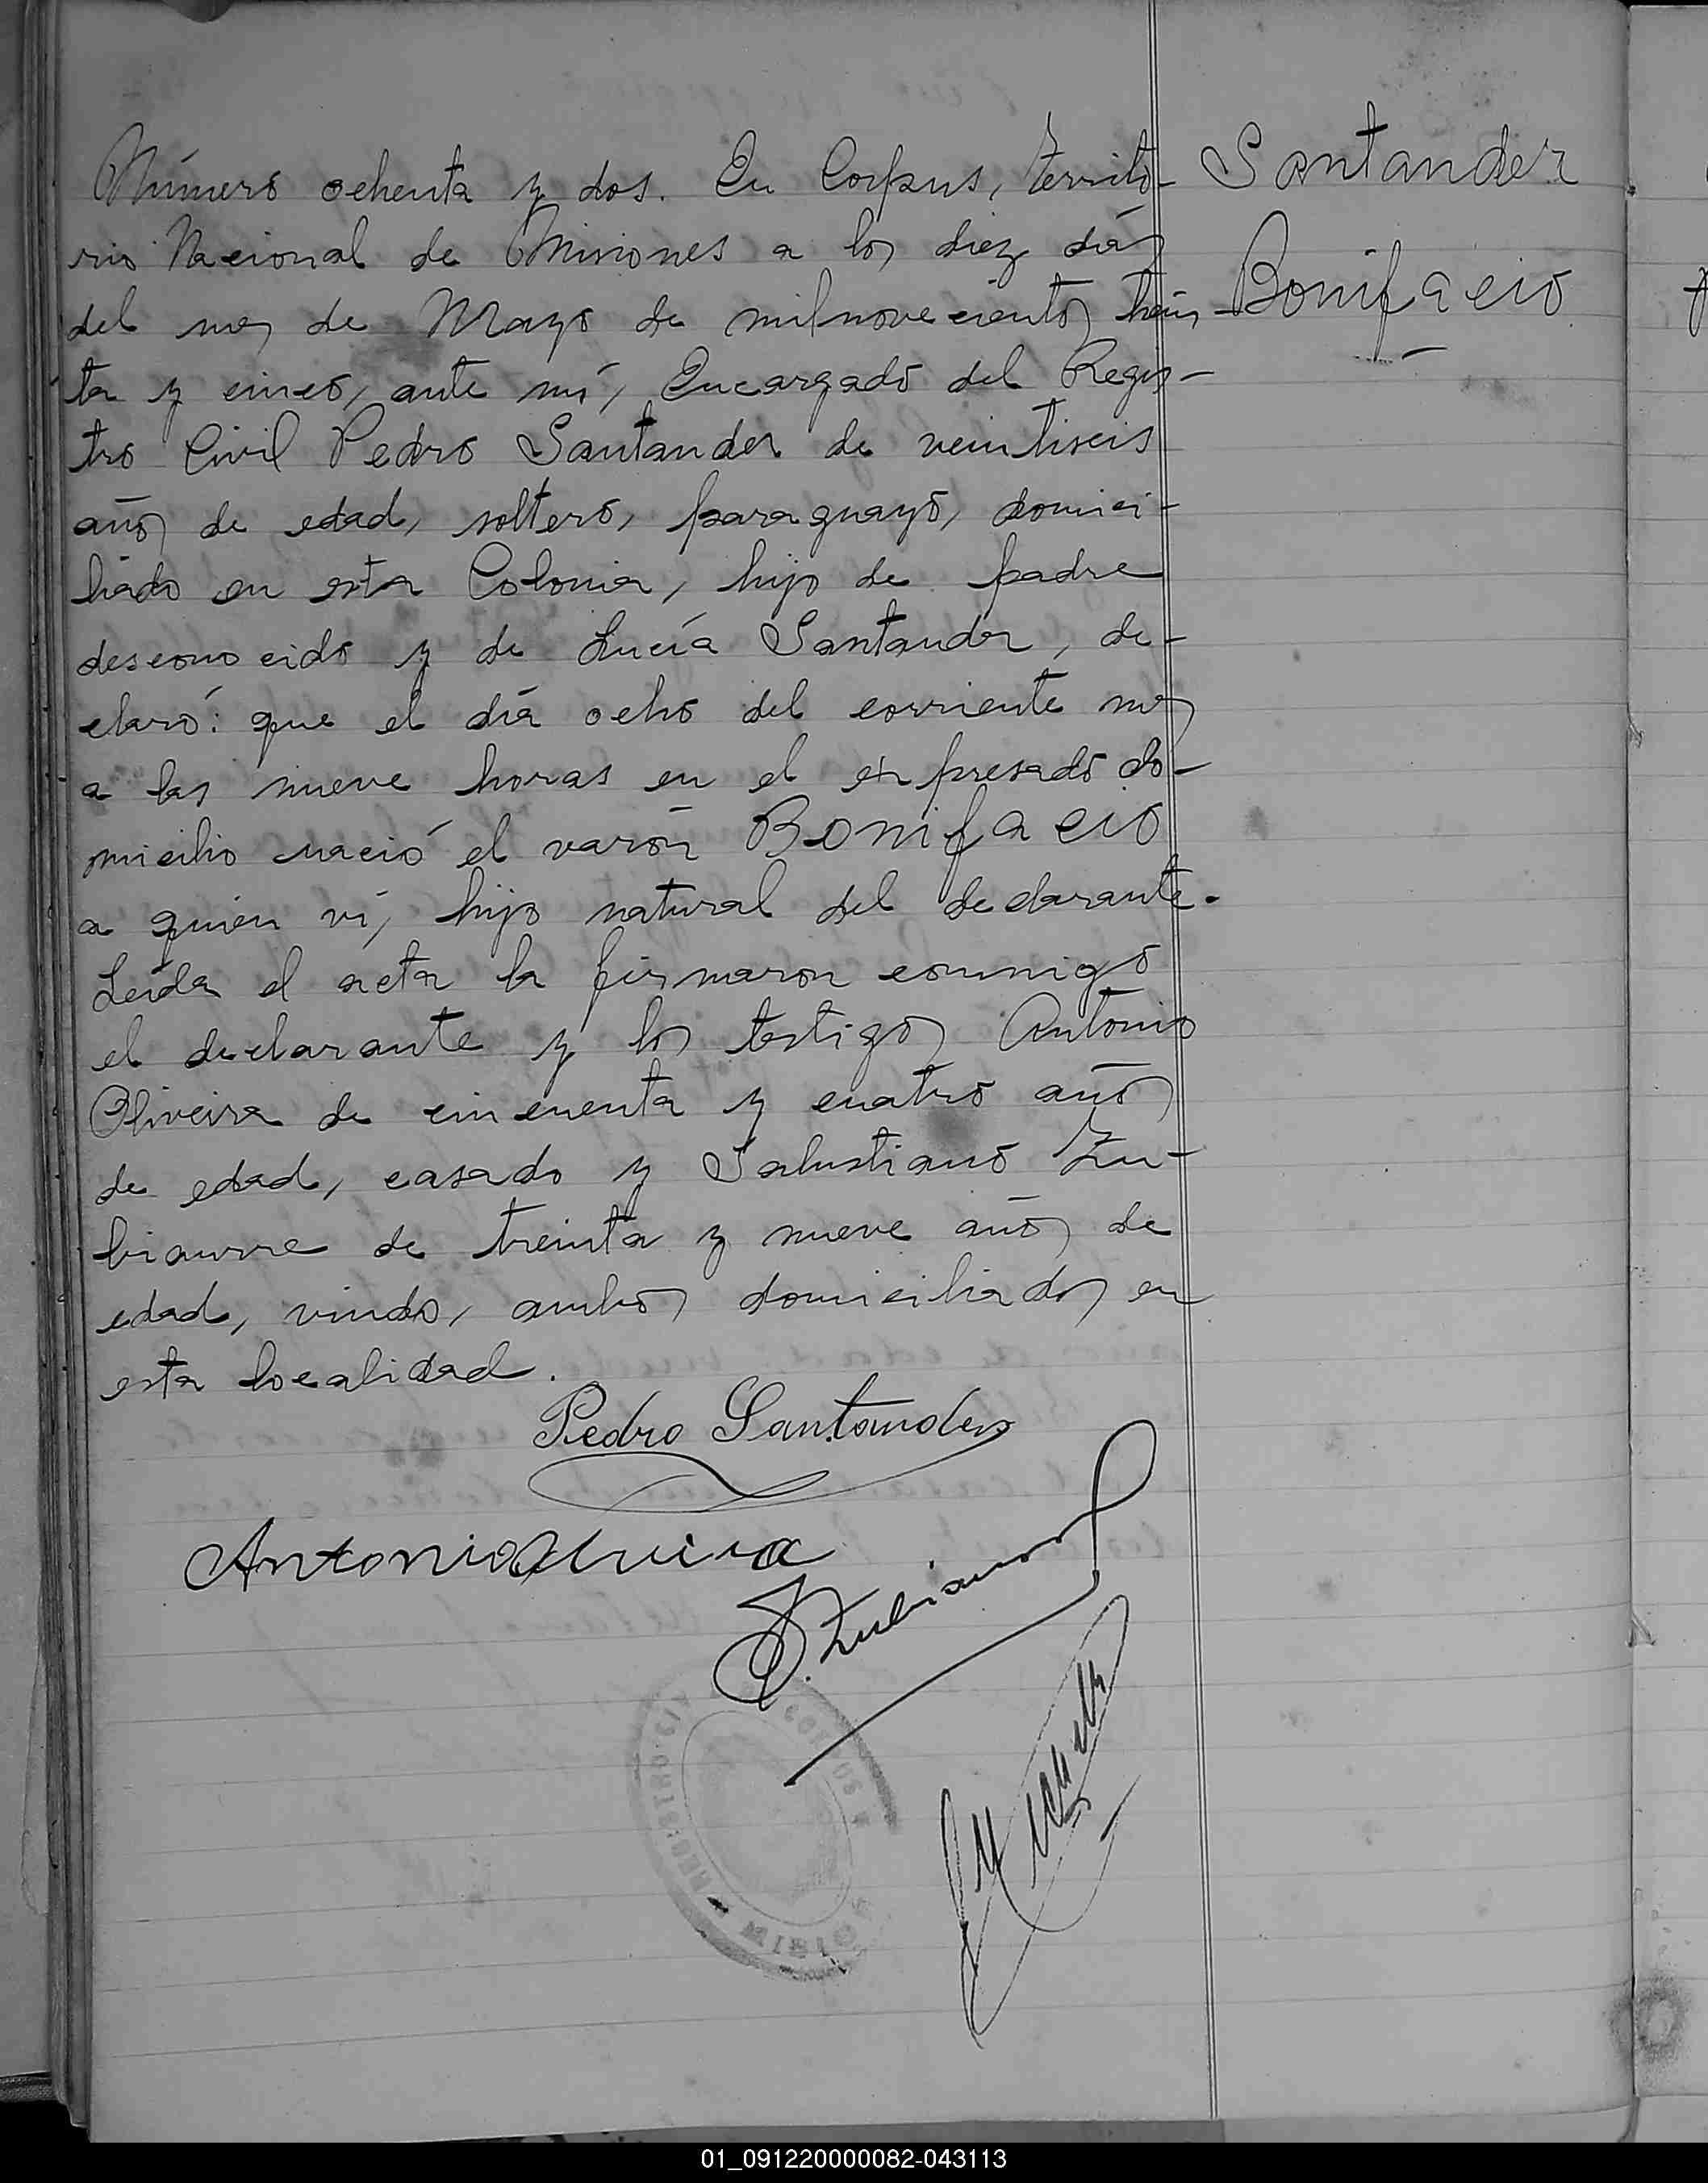 Número ochenta y dos. En Corpus, Territo-
rio Nacional de Misiones a los diez días
del mes de Mayo de mil novecientos trein-
ta y cinco, ante mí, Encargado del Regis-
tro Civil Pedro Santander de veintiseis
años de edad, soltero, paraguayo, domici-
liado en esta Colonia, hijo de padre
desconocido y de Lucía Santander, de-
claró: que el día ocho del corriente mes
a las nueve horas en el expresado do-
micilio nació el varón Bonifacio
a quien ví, hijo natural del declarante.
Leída el acta la firmaron conmigo
el declarante y los testigos Antonio
Oliveira de cincuenta y cuatro años
de edad, casado y Salustiano Zu-
biaurre de treinta y nueve años de
edad, viudo, ambos domiciliados en
esta localidad.
Santander
Bonifacio
Pedro Santander
Antonio Oliveira
S. Zubiaurre
REGISTRO CIVIL CORPUS
01_091220000082-043113